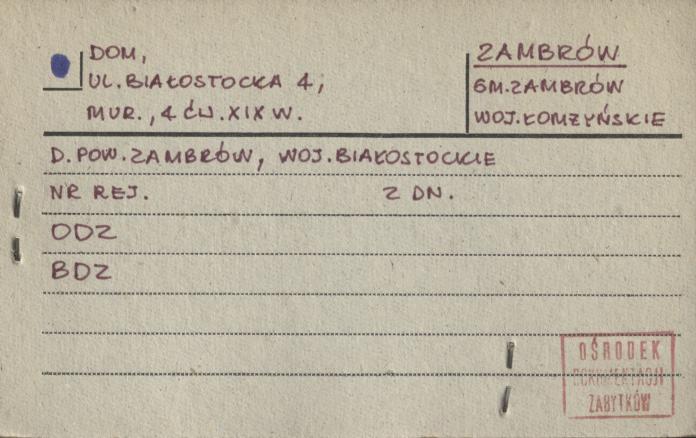 DOM,
UL. BIAŁOSTOCKA 4;
MUR., 4 ĆW. XIX W.
ZAMBRÓW
GM. ZAMBRÓW
WOJ. ŁOMŻYŃSKIE
D. POW. ZAMBRÓW, WOJ. BIAŁOSTOCKIE
NR REJ. Z DN.
ODZ
BDZ
OŚRODEK
DOKUMENTACJI
ZABYTKÓW